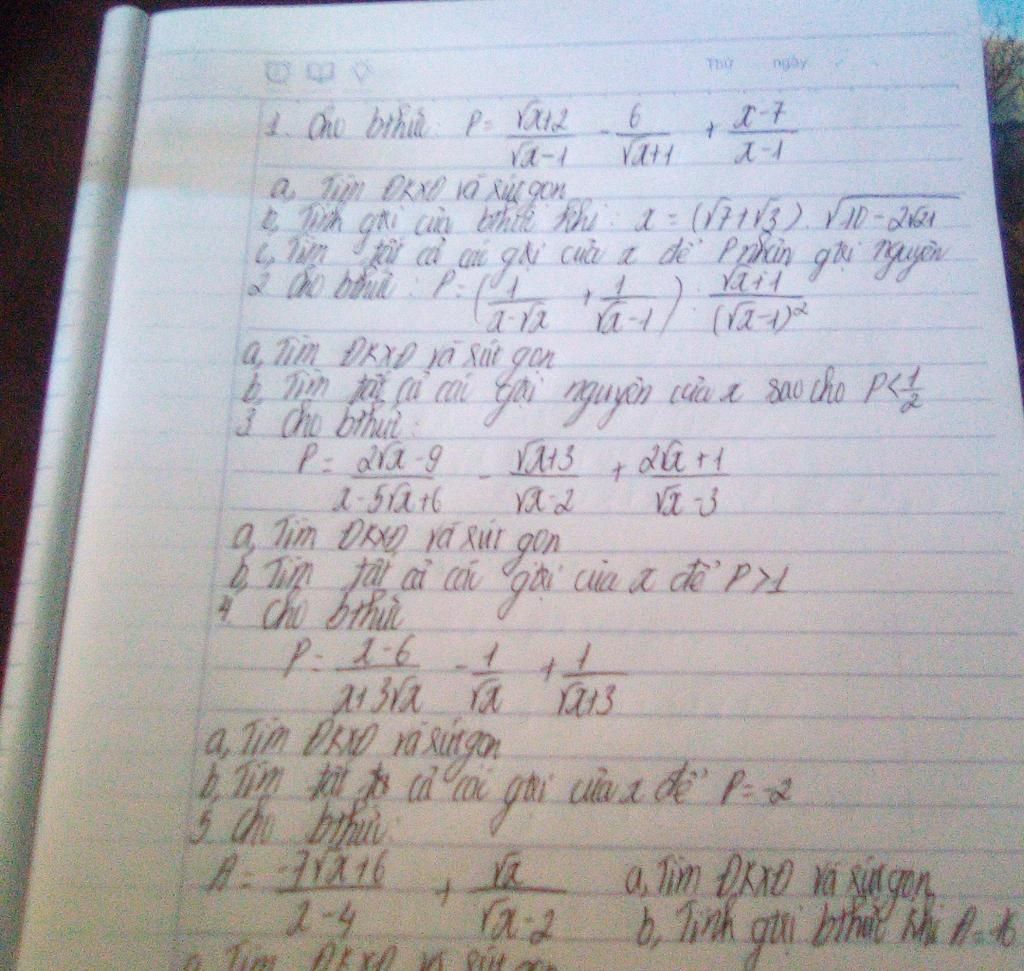 Thứ ngày
1. Cho bthức: P = (√x+2)/(√x-1) - 6/(√x+1) + (x-7)/(x-1)
a, Tìm ĐKXĐ và rút gọn
b, Tính gtrị của bthức khi: x = (√7+√3).√(10-2√21)
c, Tìm tất cả các gtrị của x để P nhận gtrị nguyên
2 Cho bthức: P = (1/(x-√x) + 1/(√x-1)) : (√x+1)/(√x-1)²
a, Tìm ĐKXĐ và rút gọn
b, Tìm tất cả các gtrị nguyên của x sao cho P < 1/2
3 Cho bthức:
P = (2√x-9)/(x-5√x+6) - (√x+3)/(√x-2) + (2√x+1)/(√x-3)
a, Tìm ĐKXĐ và rút gọn
b, Tìm tất cả các gtrị của x để P>1
4. Cho bthức
P = (x-6)/(x+3√x) - 1/√x + 1/(√x+3)
a, Tìm ĐKXĐ và rút gọn
b, Tìm tất cả các gtrị của x để P = -2
5 Cho bthức:
A = (-7√x+6)/(x-4) + √x/(√x-2) a, Tìm ĐKXĐ và rút gọn
b, Tính gtrị bthức khi
a, Tìm ĐKXĐ và rút gọn